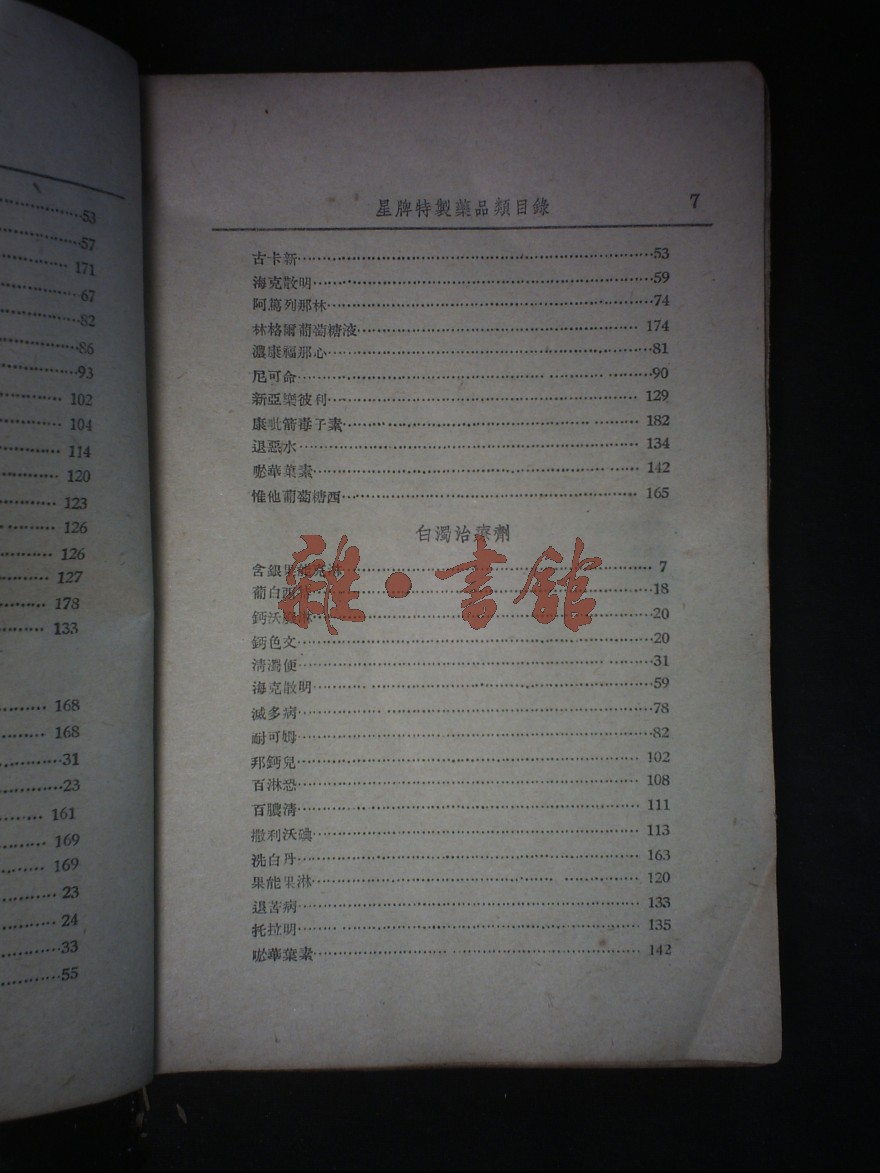 53
57
171
67
82
86
93
102
104
114
120
123
126
126
127
178
133
168
168
31
23
161
169
169
23
24
33
55
星牌特製藥品類目錄 7
古卡新 53
海克散明 59
阿篤列那林 74
林格爾葡萄糖液 174
濃康福那心 81
尼可命 90
新亞樂彼利 129
康吡箭毒子素 182
退惡水 134
嗞華葉素 142
惟他葡萄糖西 165
白濁治療劑
含銀果能 7
葡白 18
鈣沃 20
鈣色文 20
清濁便 31
海克散明 59
滅多病 78
耐可姆 82
邦鈣兒 102
百淋恐 108
百膿清 111
撒利沃碘 113
洗白丹 163
果能果淋 120
退苦病 133
托拉明 135
嗞華葉素 142
雜·書館